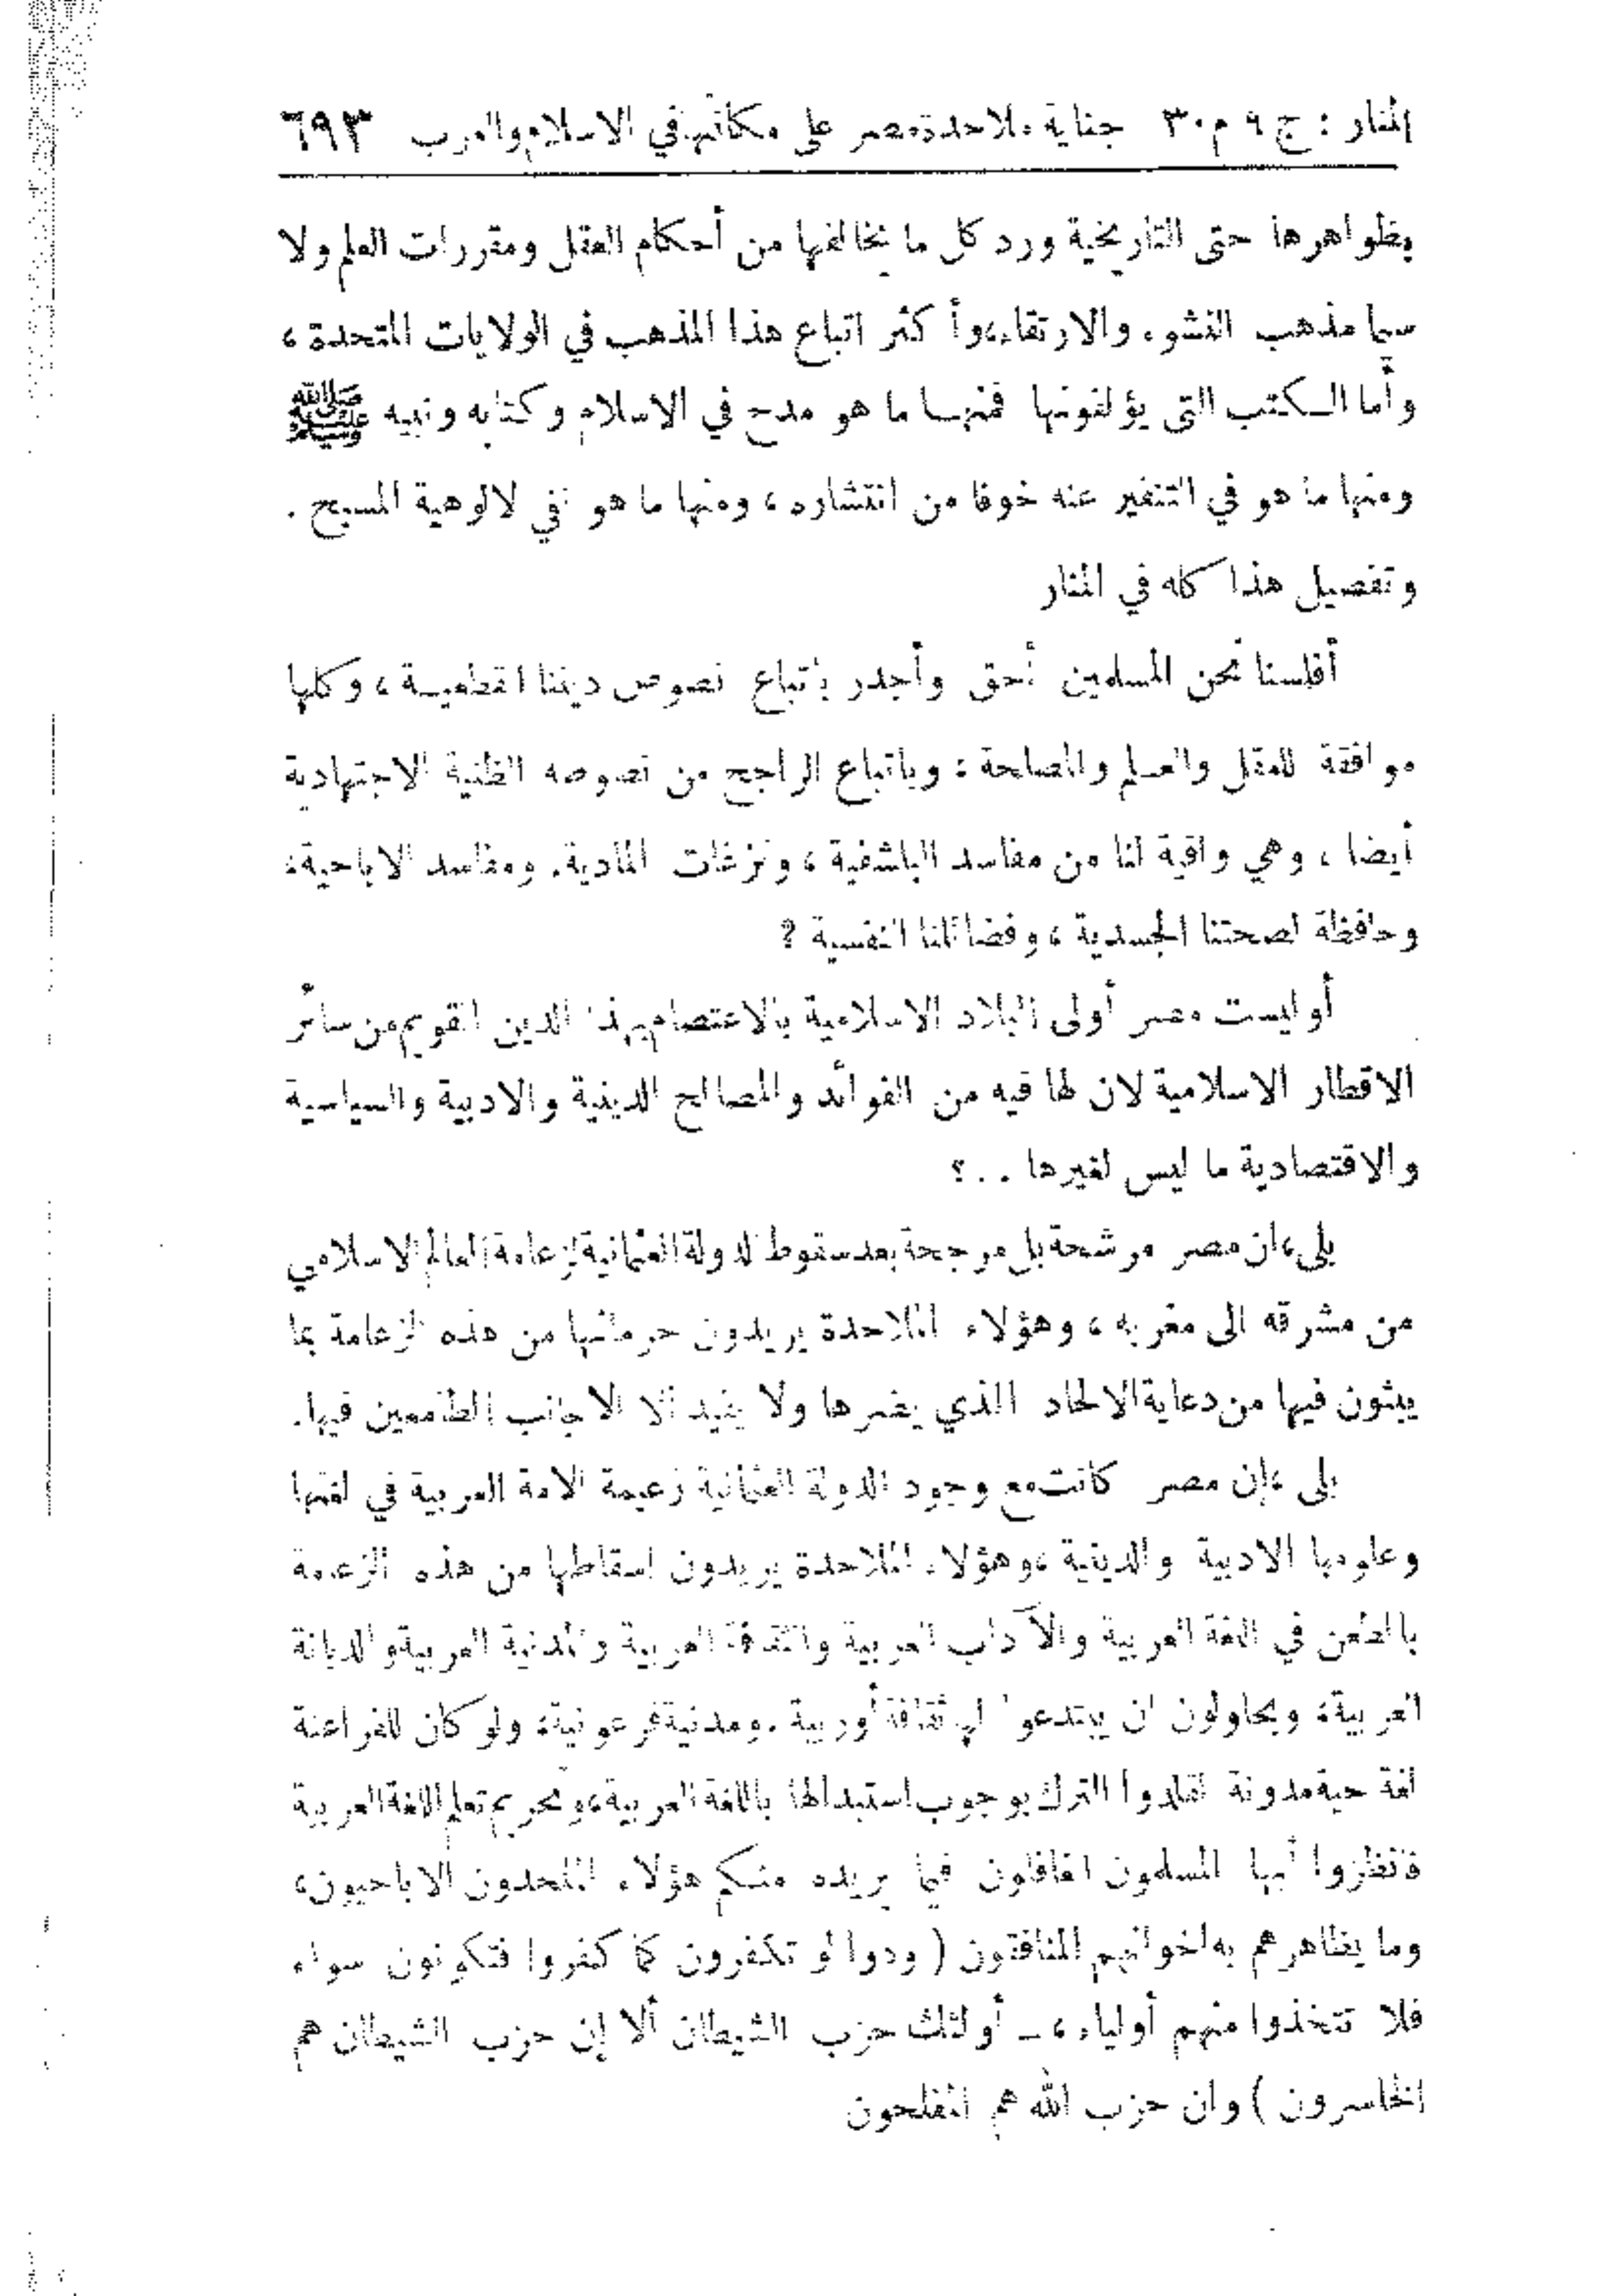 المنار : ج ٩ م ٣٠ جناية ملاحدة مصر على مكانتها في الاسلام والعرب ٦٩٣
بظواهرها حتى التاريخية ورد كل ما يخالفها من أحكام العقل ومقررات العلم ولا
سيما مذهب النشوء والارتقاء، وأكثر اتباع هذا المذهب في الولايات المتحدة ،
وأما الكتب التي يؤلفونها فمنها ما هو مدح في الاسلام وكتابه ونبيه ﷺ
ومنها ما هو في التنفير عنه خوفا من انتشاره ، ومنها ما هو نفي لالوهية المسيح .
وتفصيل هذا كله في المنار
أفلسنا نحن المسلمين أحق وأجدر باتباع نصوص ديننا القطعية ، وكلها
موافقة للعقل والعلم والمصلحة ؛ وباتباع الراجح من نصوصه الظنية الاجتهادية
أيضا ، وهي واقية لنا من مفاسد البلشفية ، ونزغات المادية، ومفاسد الاباحية،
وحافظة لصحتنا الجسدية ، وفضائلنا النفسية ؟
أو ليست مصر أولى البلاد الاسلامية بالاعتصام بهذا الدين القويم من سائر
الاقطار الاسلامية لان لها فيه من الفوائد والمصالح الدينية والادبية والسياسية
والاقتصادية ما ليس لغيرها . . ؟
بلى، ان مصر مرشحة بل مرجحة بعد سقوط الدولة العثمانية لزعامة العالم الاسلامي
من مشرقه الى مغربه ، وهؤلاء الملاحدة يريدون حرمانها من هذه الزعامة بما
يبثون فيها من دعاية الالحاد الذي يضرها ولا يفيد الا الاجانب الطامعين فيها.
بلى ، إن مصر كانت مع وجود الدولة العثمانية زعيمة الامة العربية في لغتها
وعلومها الادبية والدينية ، وهؤلاء الملاحدة يريدون اسقاطها من هذه الزعامة
بالطعن في اللغة العربية والآداب العربية والثقافة العربية والمدنية العربية والديانة
العربية، ويحاولون ان يبتدعوا لها ثقافة أوربية ، ومدنية فرعونية، ولو كان للفراعنة
لغة حية مدونة لقلدوا الترك بوجوب استبدالها باللغة العربية، وتحريم تعلم اللغة العربية
فانظروا أيها المسلمون الغافلون فيما يريده منكم هؤلاء الملحدون الاباحيون،
وما يظاهرهم به اخوانهم المنافقون ( ودوا لو تكفرون كما كفروا فتكونون سواء
فلا تتخذوا منهم أولياء ، ــ أولئك حزب الشيطان ألا إن حزب الشيطان هم
الخاسرون ) وان حزب الله هم المفلحون